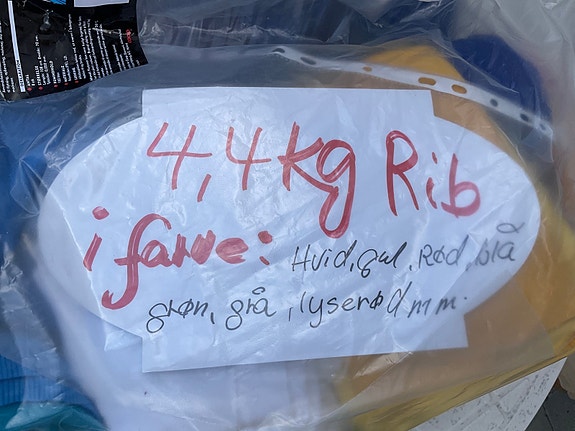 4,4kg Rib
i farve: Hvid, gul, Rød, blå
grøn, grå, lyserød mm.